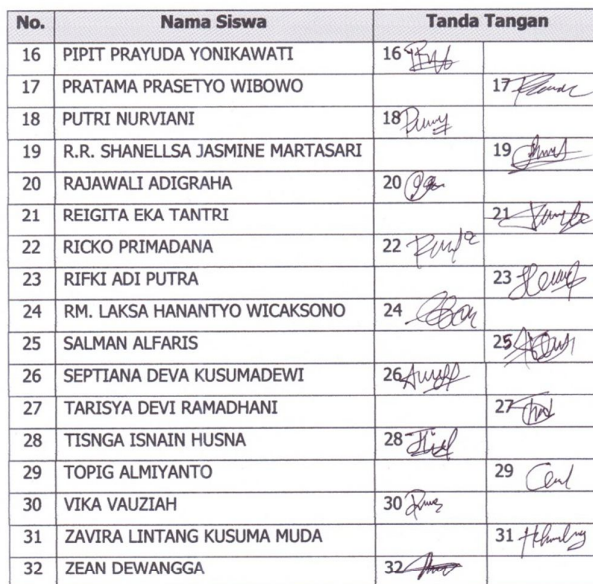 No. Nama Siswa Tanda Tangan
16 PIPIT PRAYUDA YONIKAWATI 16
17 PRATAMA PRASETYO WIBOWO 17
18 PUTRI NURVIANI 18
19 R.R. SHANELLSA JASMINE MARTASARI 19
20 RAJAWALI ADIGRAHA 20
21 REIGITA EKA TANTRI 21
22 RICKO PRIMADANA 22
23 RIFKI ADI PUTRA 23
24 RM. LAKSA HANANTYO WICAKSONO 24
25 SALMAN ALFARIS 25
26 SEPTIANA DEVA KUSUMADEWI 26
27 TARISYA DEVI RAMADHANI 27
28 TISNGA ISNAIN HUSNA 28
29 TOPIG ALMIYANTO 29
30 VIKA VAUZIAH 30
31 ZAVIRA LINTANG KUSUMA MUDA 31
32 ZEAN DEWANGGA 32